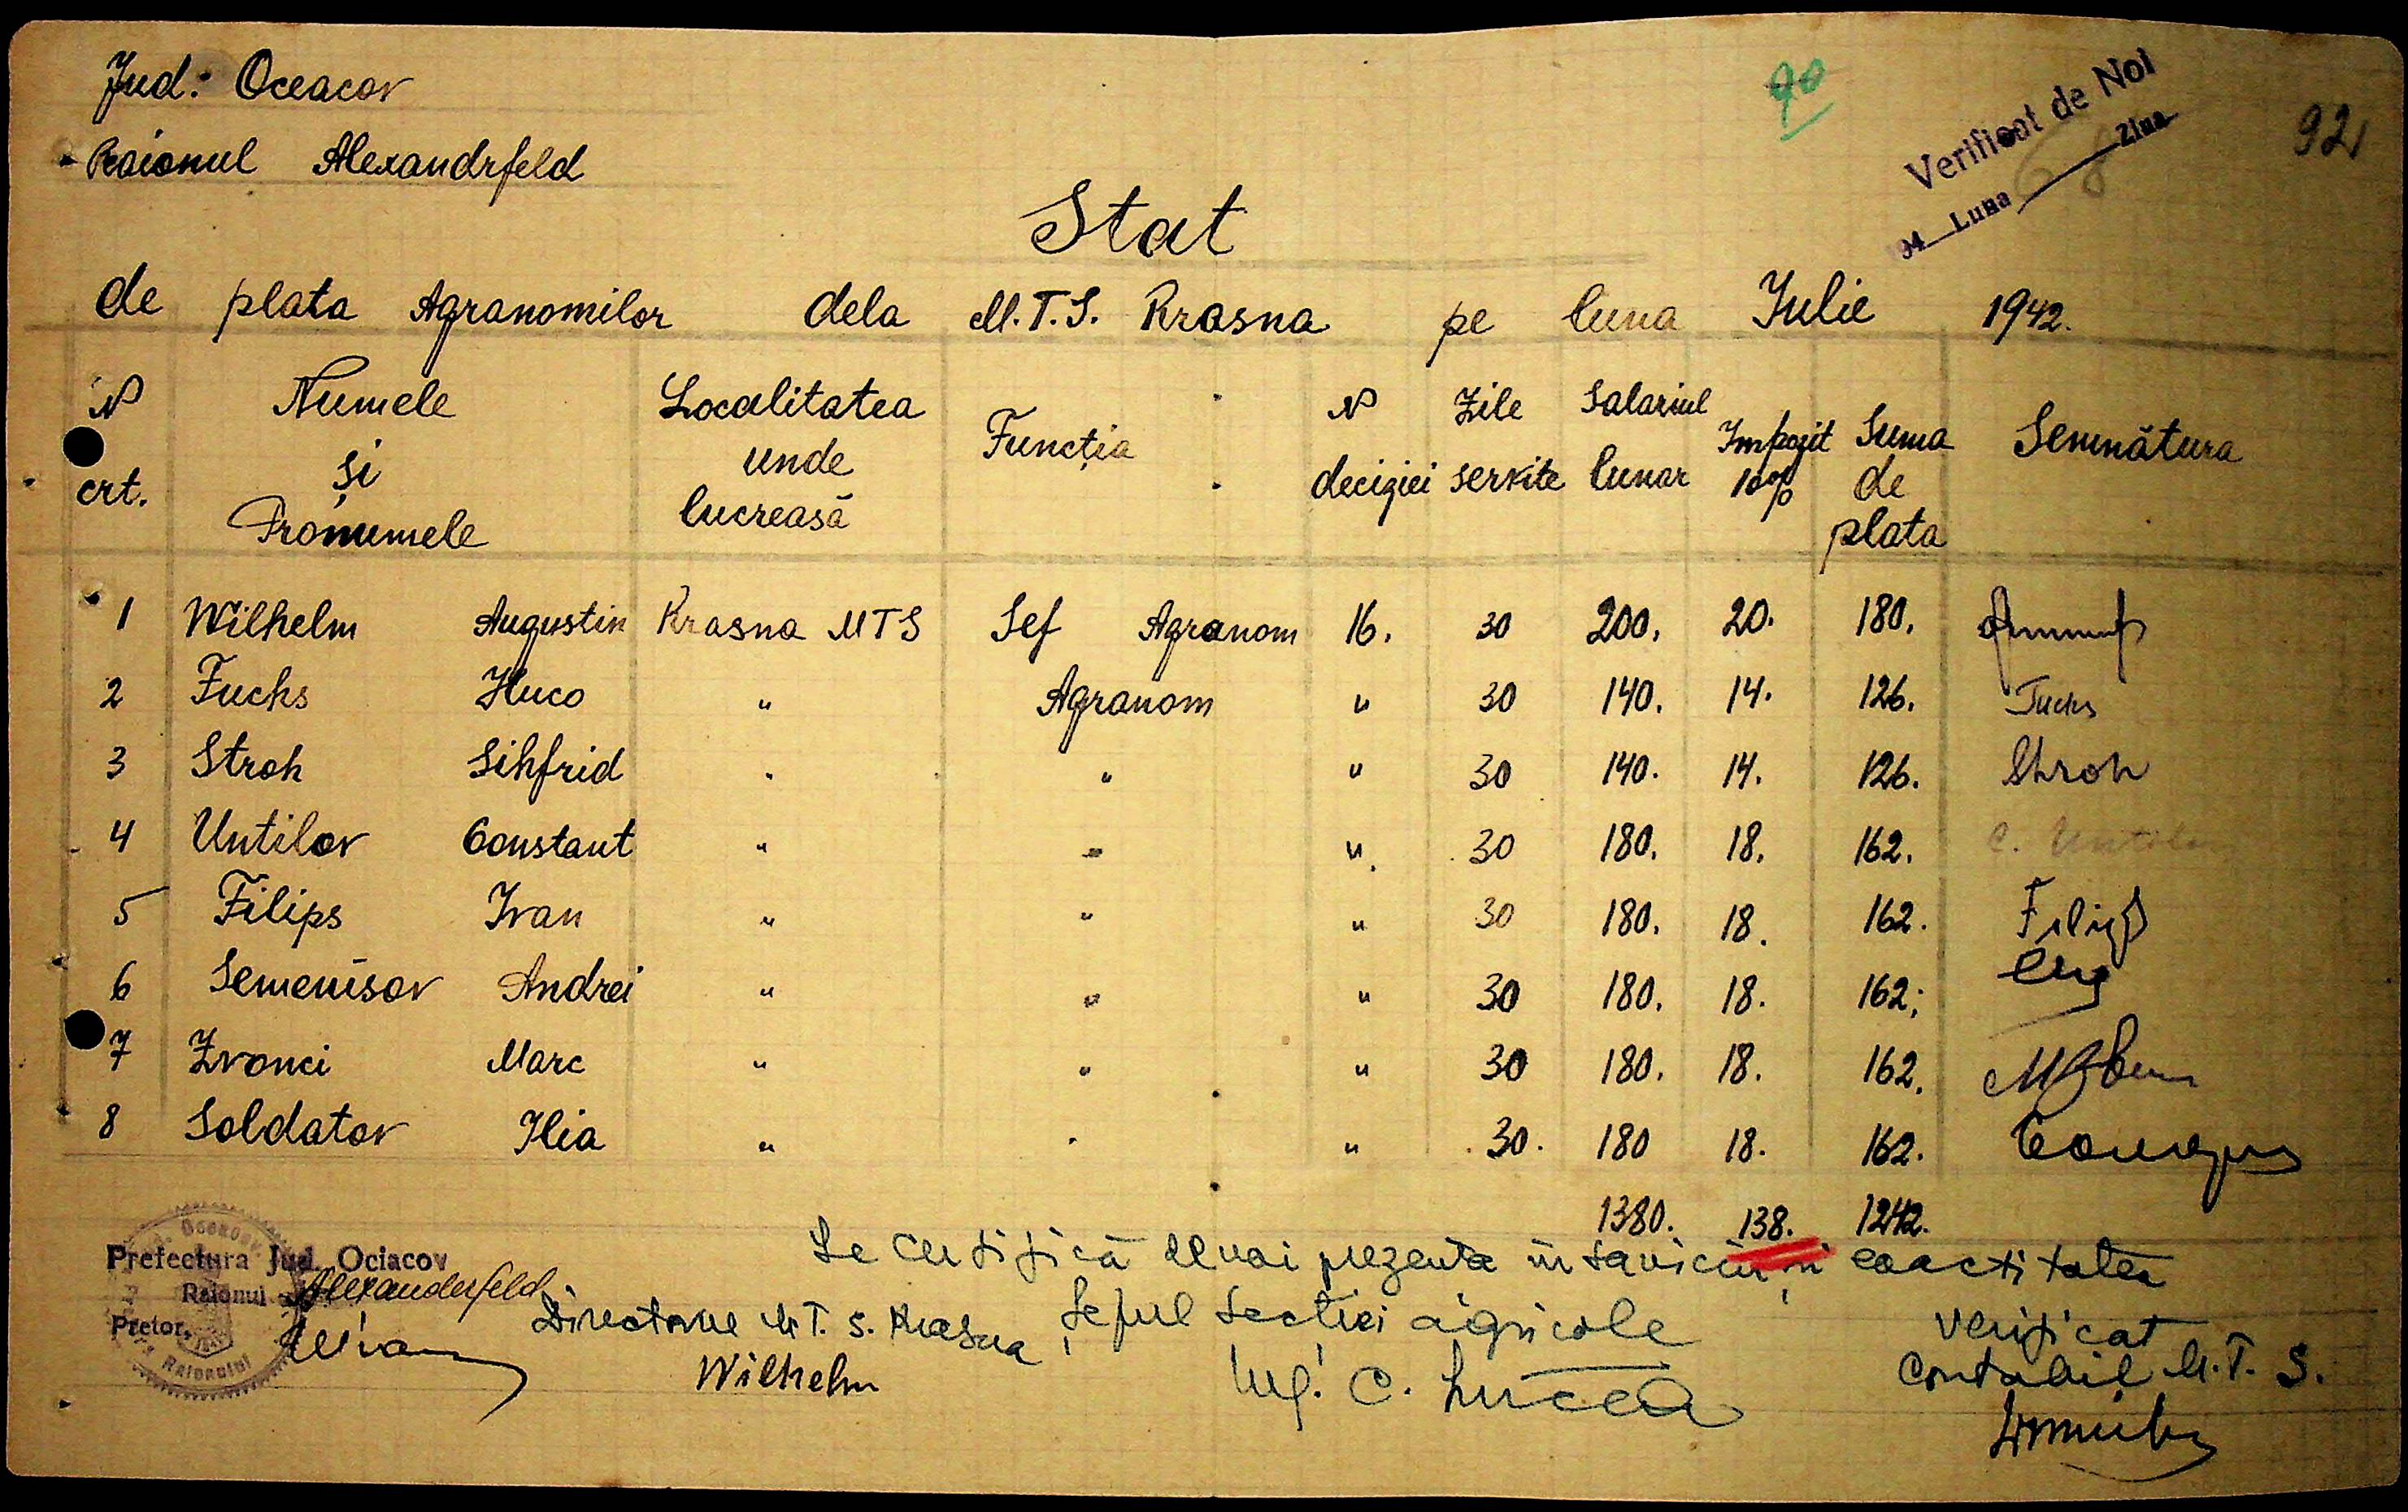 Jud: Oceacov
Raionul Alexandrfeld
90
Verificat de Noi
94 Luna Ziua
92
Stat
de plata Agranomilor dela M.T.S. Krasna pe luna Julie 1942.
№ crt. Numele și Pronumele Localitatea unde lucreasă Funcția № deciziei Zile servite Salariul lunar Impozit 10% Suma de plata Semnătura
1 Wilhelm Augustin Krasna MTS Sef Agranom 16. 30 200. 20. 180.
2 Fuchs Huco " Agranom " 30 140. 14. 126. Fuchs
3 Stroh Sihfrid " " " 30 140. 14. 126. Stroh
4 Untilov Constant " " " 30 180. 18. 162. C. Untilov
5 Filips Ivan " " " 30 180. 18. 162. Filips
6 Semenisov Andrei " " " 30 180. 18. 162.
7 Zvonci Marc " " " 30 180. 18. 162.
8 Soldatov Ilia " " " 30. 180 18. 162.
1380. 138. 1242.
Se certifică prezenta in serviciu si exactitatea
Prefectura Jud. Ociacov
Raionul Alexanderfeld
Pretor,
Directorul M.T.S. Krasna
Wilhelm
Seful Sectiei agricole
Ing. C. Mircea
Verificat
Contabil M.T.S.